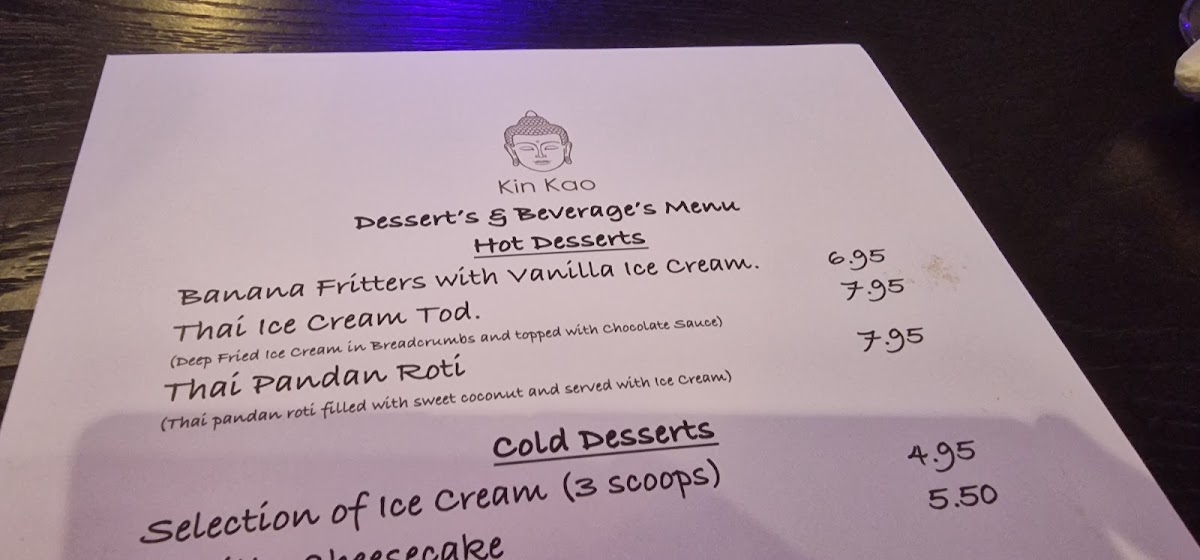 Kin Kao
Dessert's & Beverage's Menu
Hot Desserts
Banana Fritters with Vanilla Ice Cream. 6.95
Thai Ice Cream Tod. 7.95
(Deep Fried Ice Cream in Breadcrumbs and topped with Chocolate Sauce)
Thai Pandan Roti 7.95
(Thai pandan roti filled with sweet coconut and served with Ice Cream)
Cold Desserts
Selection of Ice Cream (3 scoops) 4.95
Cheesecake 5.50